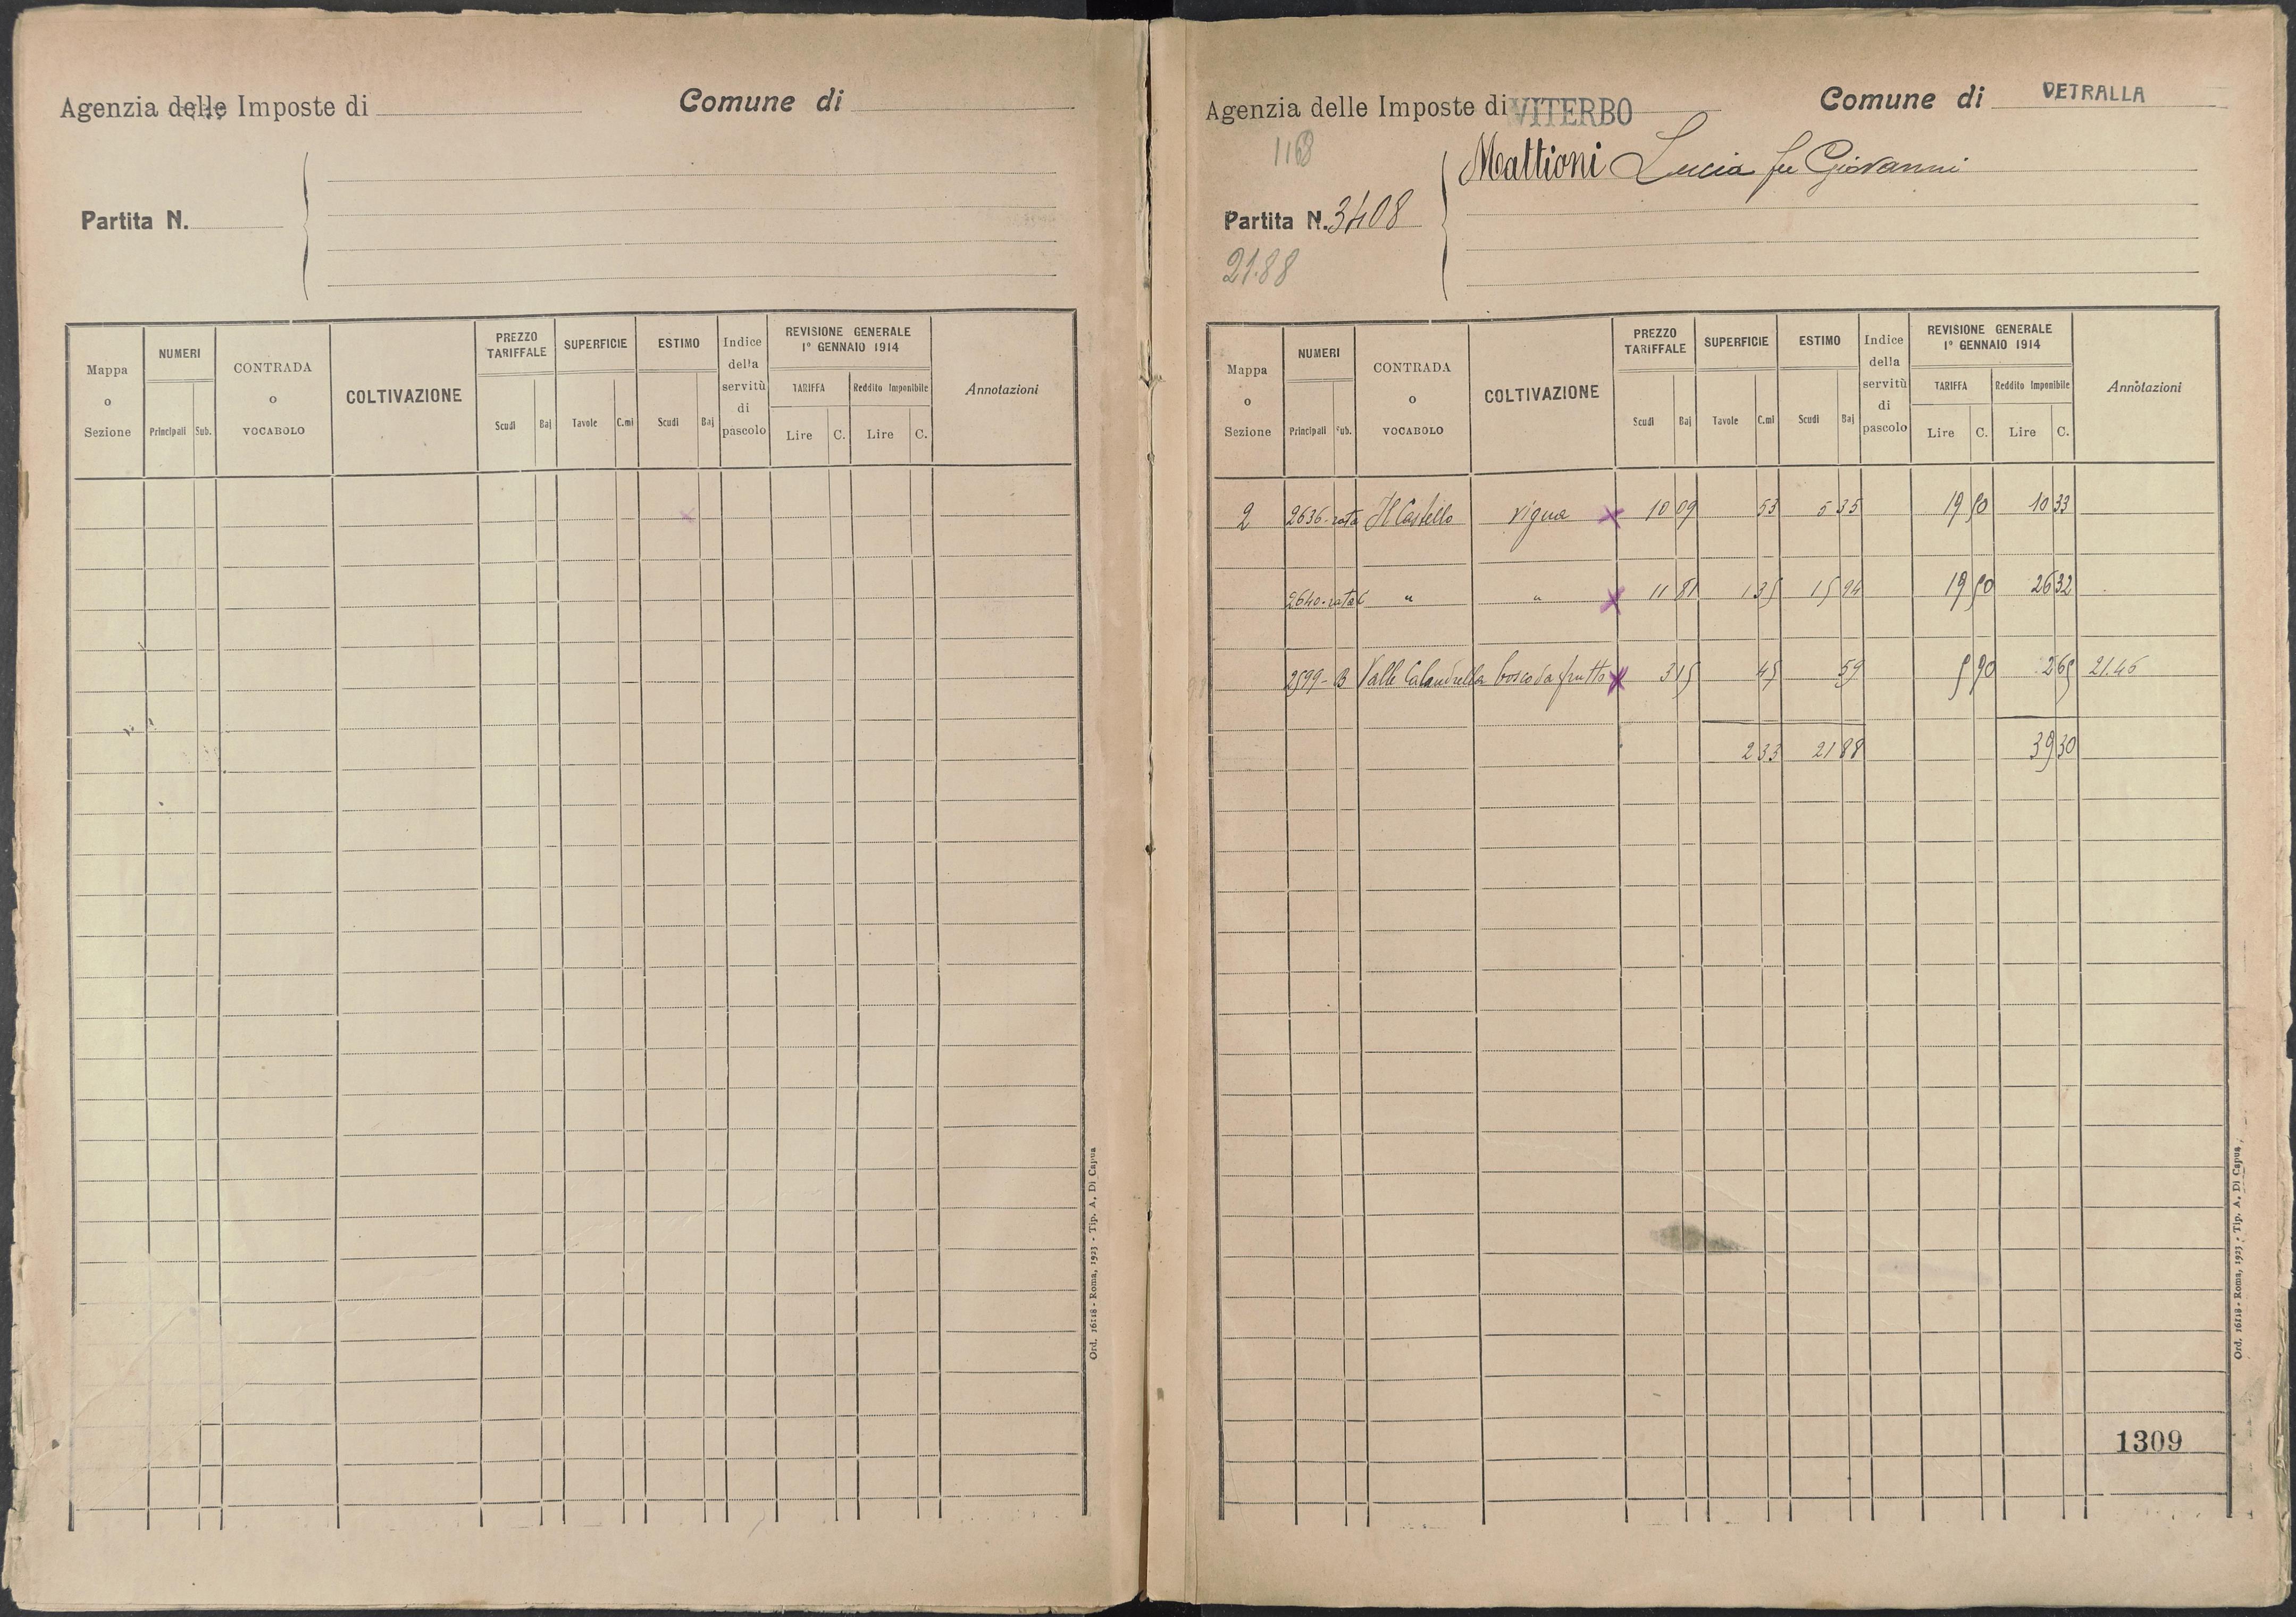 Agenzia delle Imposte di
Comune di
Partita N.
Mappa o Sezione
NUMERI
Principali Sub.
CONTRADA o VOCABOLO
COLTIVAZIONE
PREZZO TARIFFALE
Scudi Baj
SUPERFICIE
Tavole C.mi
ESTIMO
Scudi Baj
Indice della servitù di pascolo
REVISIONE GENERALE
1° GENNAIO 1914
TARIFFA Reddito Imponibile
Lire C. Lire C.
Annotazioni
Ord. 16118 - Roma, 1923 - Tip. A. Di Capua
Agenzia delle Imposte di VITERBO
Comune di VETRALLA
1168
Mattioni Lucia fu Giovanni
Partita N. 3408
21.88
Mappa o Sezione
NUMERI
Principali Sub.
CONTRADA o VOCABOLO
COLTIVAZIONE
PREZZO TARIFFALE
Scudi Baj
SUPERFICIE
Tavole C.mi
ESTIMO
Scudi Baj
Indice della servitù di pascolo
REVISIONE GENERALE
1° GENNAIO 1914
TARIFFA Reddito Imponibile
Lire C. Lire C.
Annotazioni
2 2636-rata Il Castello vigna x 10 09 53 5 35 19 50 10 33
2640-rata " " x 11 81 1 35 15 94 19 50 26 32
2599-B Valle Calandrella bosco da frutto x 3 15 45 59 5 90 2 65 21.46
2 33 21 88 39 30
1309
Ord. 16118 - Roma, 1923 - Tip. A. Di Capua